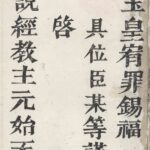 玉皇宥罪錫福
具位臣某等謹
啓
説經教主元始